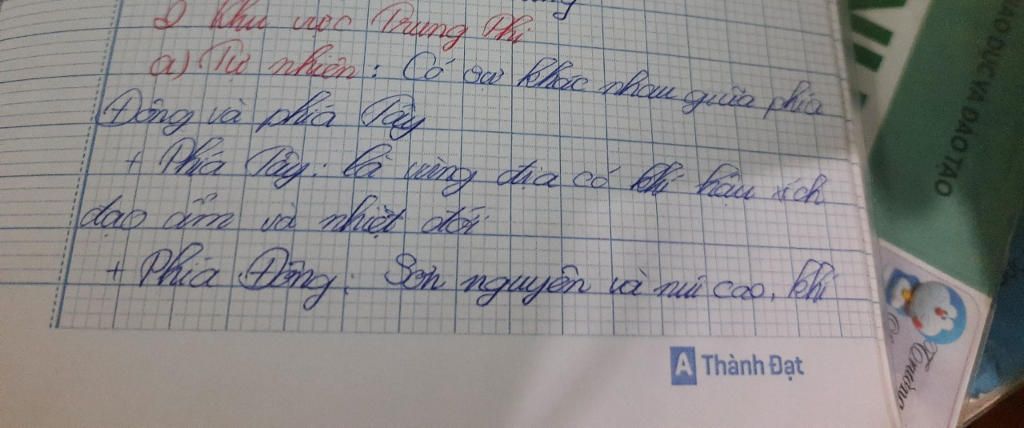 2 khu vực Trung Phi
a) Tự nhiên: Có sự khác nhau giữa phía
Đông và phía Tây
+ Phía Tây: là vùng địa có khí hậu xích
đạo ẩm và nhiệt đới
+ Phía Đông: Sơn nguyên và núi cao, khí
A Thành Đạt
GIÁO DỤC VÀ ĐÀO TẠO
Trường